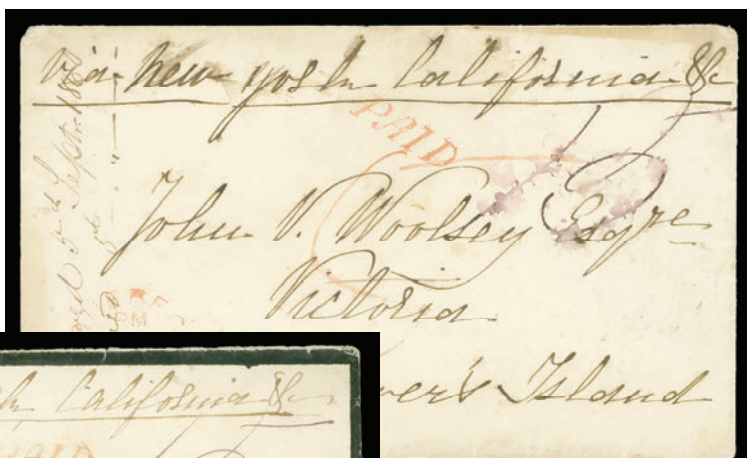 via New York California &c
PAID
John V. Woolsey Esqre
Victoria
ver's Island
5th Septr.
California &c
PAID